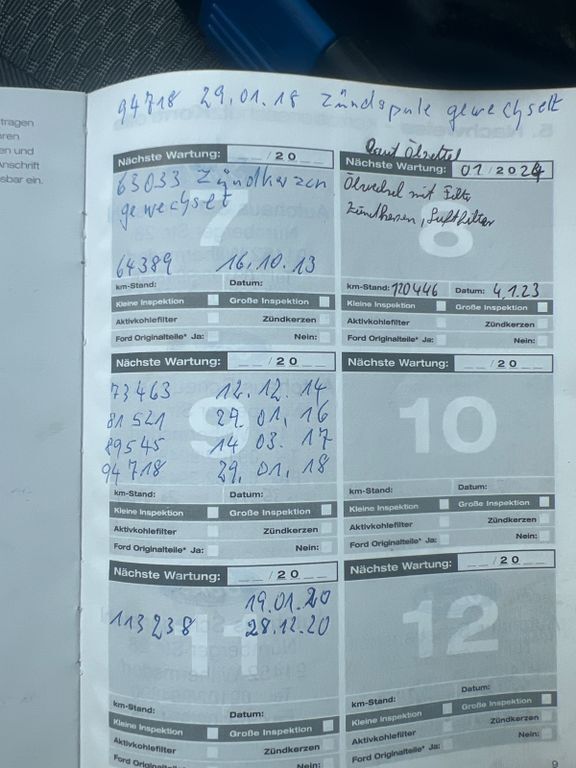 94718 29.01.18 Zündspule gewechselt
tragen
en und
Anschrift
sbar ein.
Nächste Wartung: __/20__
63033 Zündkerzen
gewechselt
7
64389 16.10.13
km-Stand: Datum:
Kleine Inspektion Große Inspektion
Aktivkohlefilter Zündkerzen
Ford Originalteile* Ja: Nein:
Nächste Wartung: 01/2024
Ölwechsel mit Filter
Zündkerzen, Luftfilter
8
km-Stand: 120446 Datum: 4.1.23
Kleine Inspektion Große Inspektion
Aktivkohlefilter Zündkerzen
Ford Originalteile* Ja: Nein:
Nächste Wartung: __/20__
73463 12.12.14
81521 29.01.16
89545 14.03.17
94718 29.01.18
9
km-Stand: Datum:
Kleine Inspektion Große Inspektion
Aktivkohlefilter Zündkerzen
Ford Originalteile* Ja: Nein:
Nächste Wartung: __/20__
10
km-Stand: Datum:
Kleine Inspektion Große Inspektion
Aktivkohlefilter Zündkerzen
Ford Originalteile* Ja: Nein:
Nächste Wartung: __/20__
19.01.20
113238 28.12.20
11
km-Stand: Datum:
Kleine Inspektion Große Inspektion
Aktivkohlefilter Zündkerzen
Ford Originalteile* Ja: Nein:
Nächste Wartung: __/20__
12
km-Stand: Datum:
Kleine Inspektion Große Inspektion
Aktivkohlefilter Zündkerzen
Ford Originalteile* Ja: Nein:
9